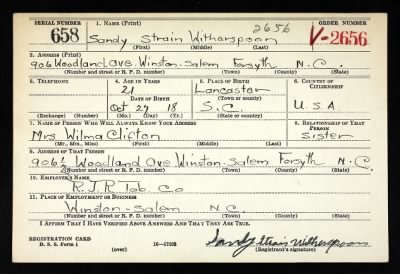 SERIAL NUMBER
1. NAME (Print)
ORDER NUMBER
658
Sandy Strain Witherspoon
2656
V-2656
(First) (Middle) (Last)
2. ADDRESS (Print)
906 Woodland Ave. Winston-Salem Forsyth N.C.
(Number and street or R. F. D. number) (Town) (County) (State)
3. TELEPHONE
4. AGE IN YEARS
5. PLACE OF BIRTH
6. COUNTRY OF CITIZENSHIP
21
Lancaster
DATE OF BIRTH
(Town or county)
Oct 27 18
S.C.
U.S.A.
(Exchange) (Number)
(Mo.) (Day) (Yr.)
(State or country)
7. NAME OF PERSON WHO WILL ALWAYS KNOW YOUR ADDRESS
8. RELATIONSHIP OF THAT PERSON
Mrs. Wilma Clifton
Sister
(Mr., Mrs., Miss) (First) (Middle) (Last)
9. ADDRESS OF THAT PERSON
906½ Woodland Ave. Winston-Salem Forsyth N.C.
(Number and street or R. F. D. number) (Town) (County) (State)
10. EMPLOYER'S NAME
R.J.R Tob. Co
11. PLACE OF EMPLOYMENT OR BUSINESS
Winston-Salem N.C.
(Number and street or R. F. D. number) (Town) (County) (State)
I AFFIRM THAT I HAVE VERIFIED ABOVE ANSWERS AND THAT THEY ARE TRUE.
REGISTRATION CARD
D. S. S. Form 1
(over)
16—17105
Sandy Strain Witherspoon
(Registrant's signature)